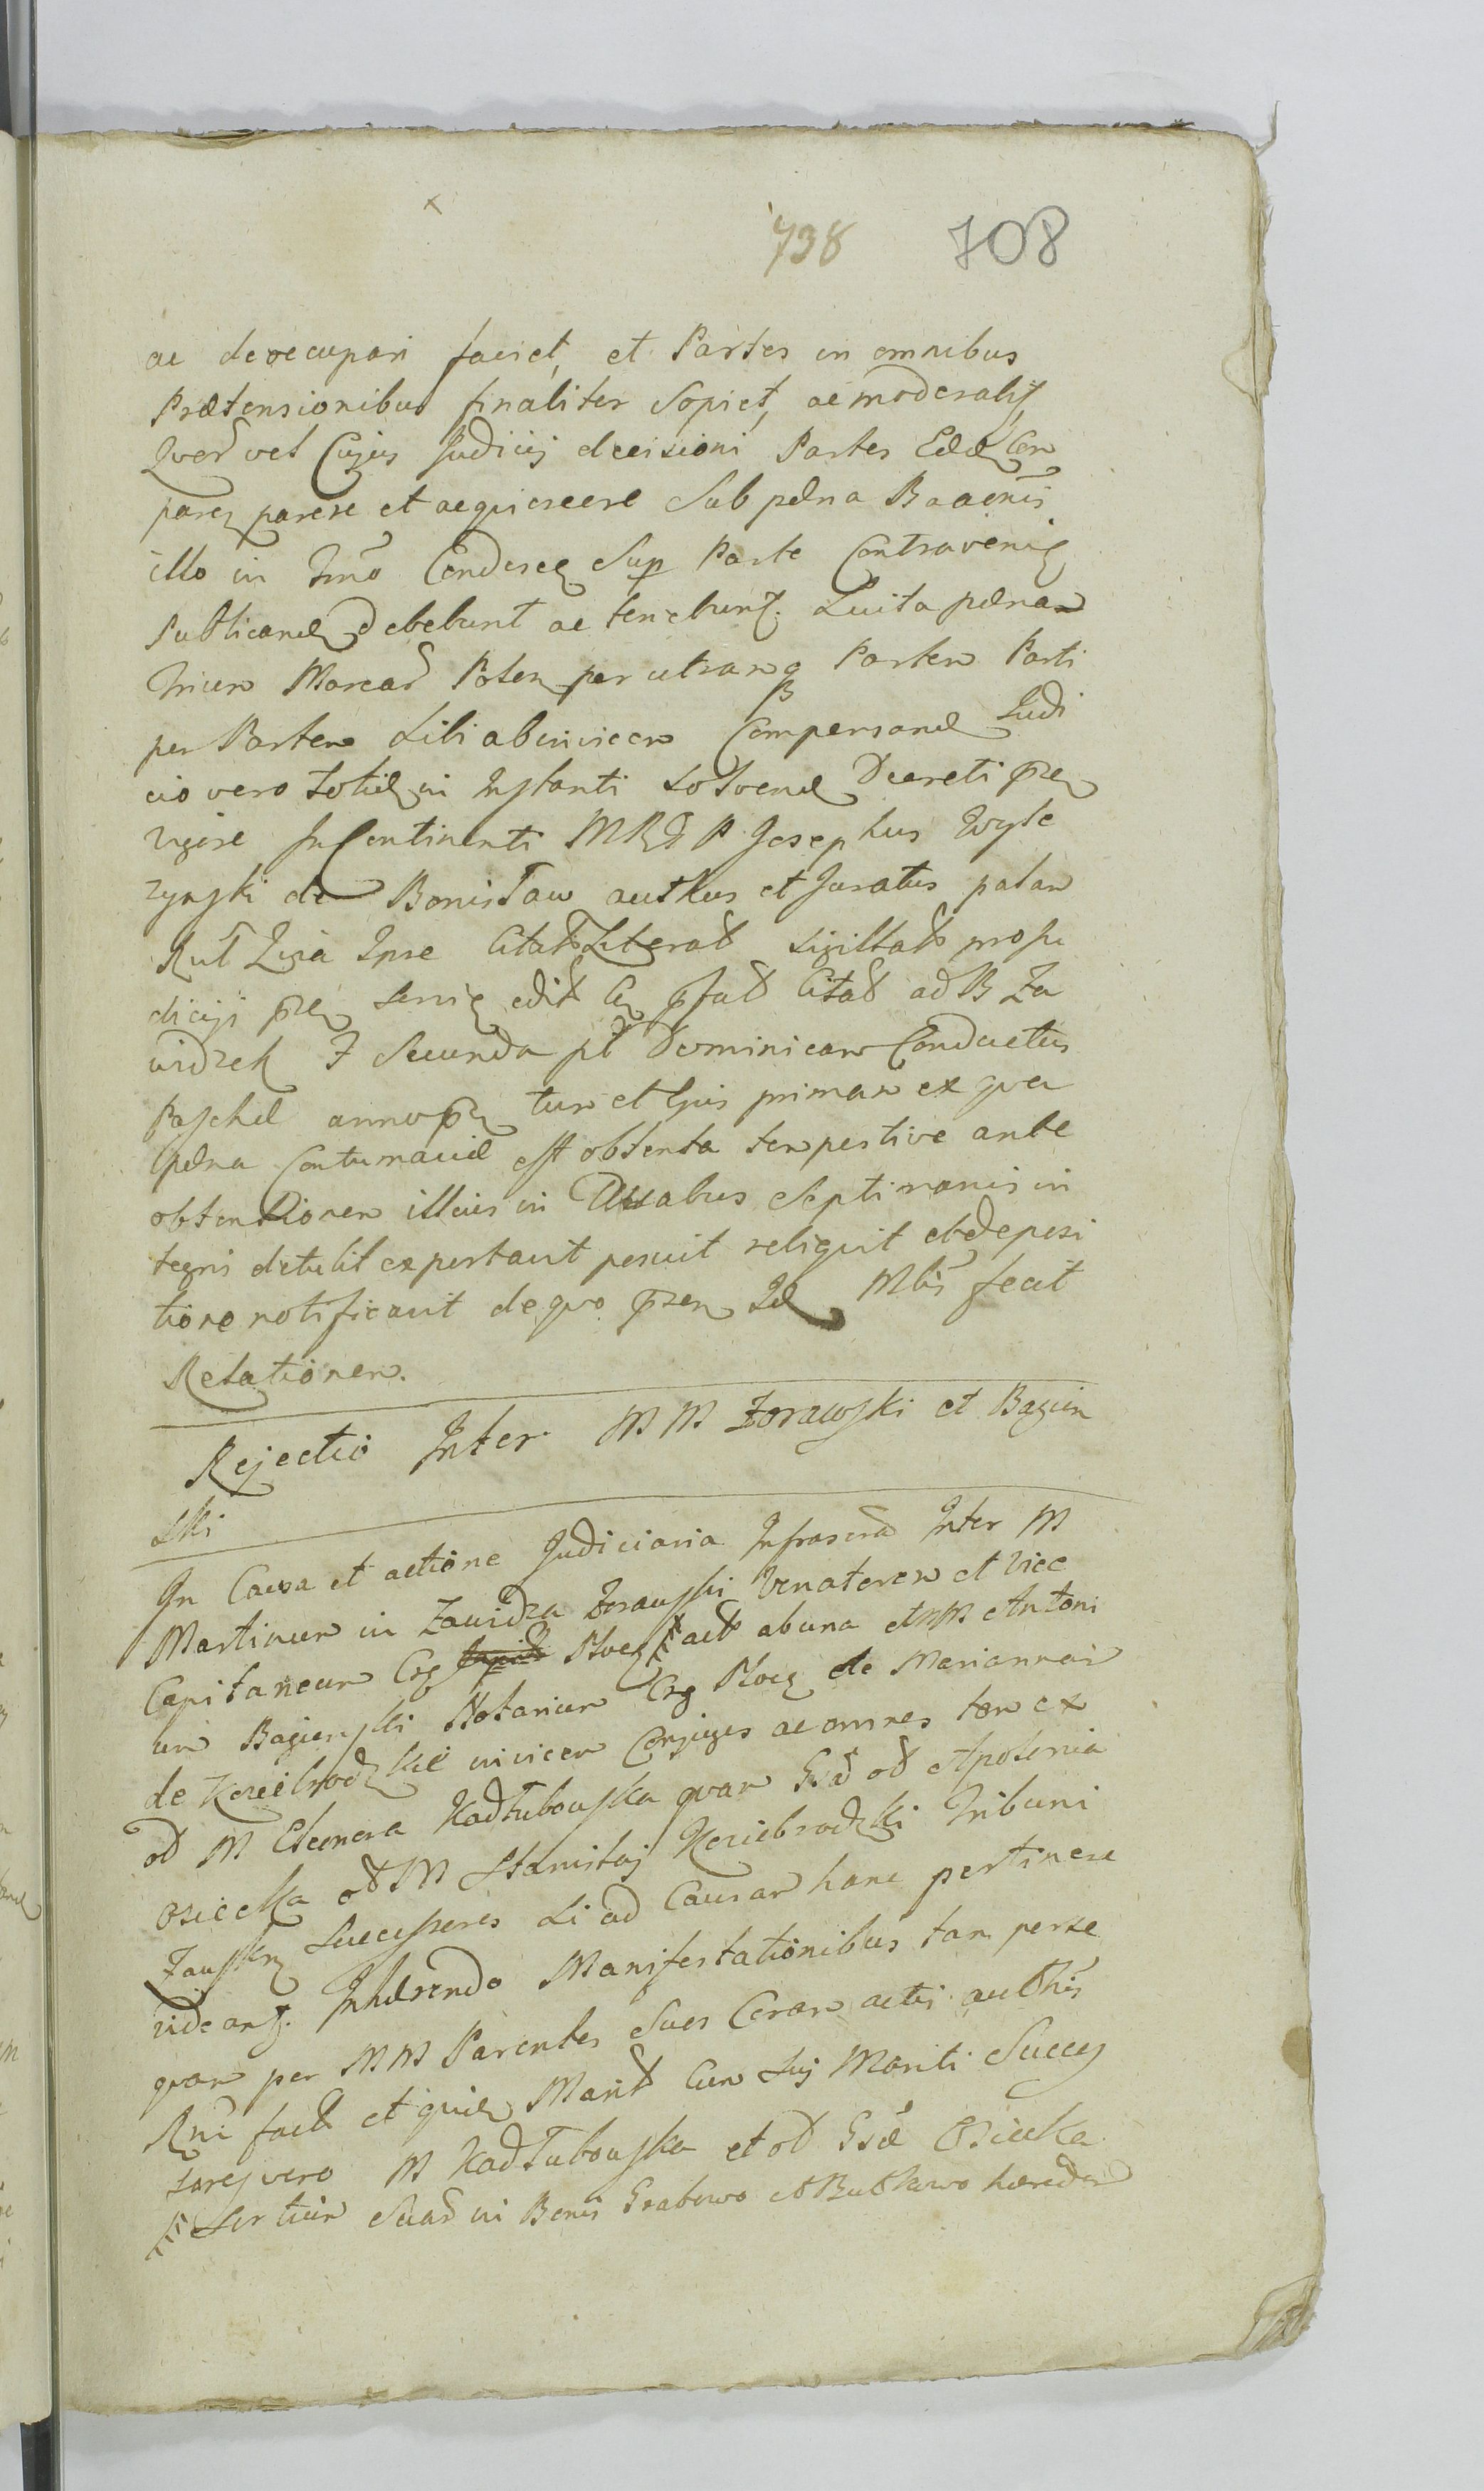 738 708
ac deoccupari faciet, et Partes in omnibus
Prætensionibus finaliter sopiet, ac moderabit
Quod vel Cujus Judicij decisioni Partes Eæd Com
paren parere et acquiescere sub pæna Bannis
illo in Irno Condescen Sup Parte Contravenien
Publicand debebunt ac tenebunt. Luita pænan
trium Marcar Polon per utranq Partem Parti
per Partem sibi ab invicem Compensand Judi
cio vero totid in Instanti solvend Decreti præn
vigore In Continenti MRdt P Josephus Wyso
zynski de Bonisław authus et Juratus palam
Rnt Quia Ipse Citat Literat sigillat
dicij præn edit Citat ad B Za
widzek F Secunda pt Dominicam Conductus
Paschæ anno præn tum et Ejus primam ex qua
pæna Contumaciæ est obtenta tempestive ante
obtentionem illius in Duabus Septimanis in
tegris detulit exportavit posuit reliquit et deposi
tione notificavit de quo præsen Mbis fecit
Relationem.
Rejectio Inter MM Zorawski et Bagien
ski
In Causa et actione Judiciaria Infrascra Inter M
Martinum in Zawidza Zorawski Venatorem et Vice
Capitaneum Crg Ploc act ab una et MM Antoni
um Bagienski Notarium Crg Ploc de Mariannai
de Kosiebrodzkie invicem Conjuges ac omnes tam ex
od M Eleonora Kadłubowska quam Gsd od Apolonia
Osiecka od M Stanislaj Kosiebrodzki Tribuni
Zawskrz Successores si ad Causam hanc pertinere
videant. Inhærendo Manifestationibus tam per se
quam per MM Parentes suos Coram actis authis
Rni fact et quid Manft Cum Suj Mariti Succes
sores vero M Kadłubowska et od Gsd Osiecka
Sortium suar in Bonis Grabowo et Rutkowo hæredit